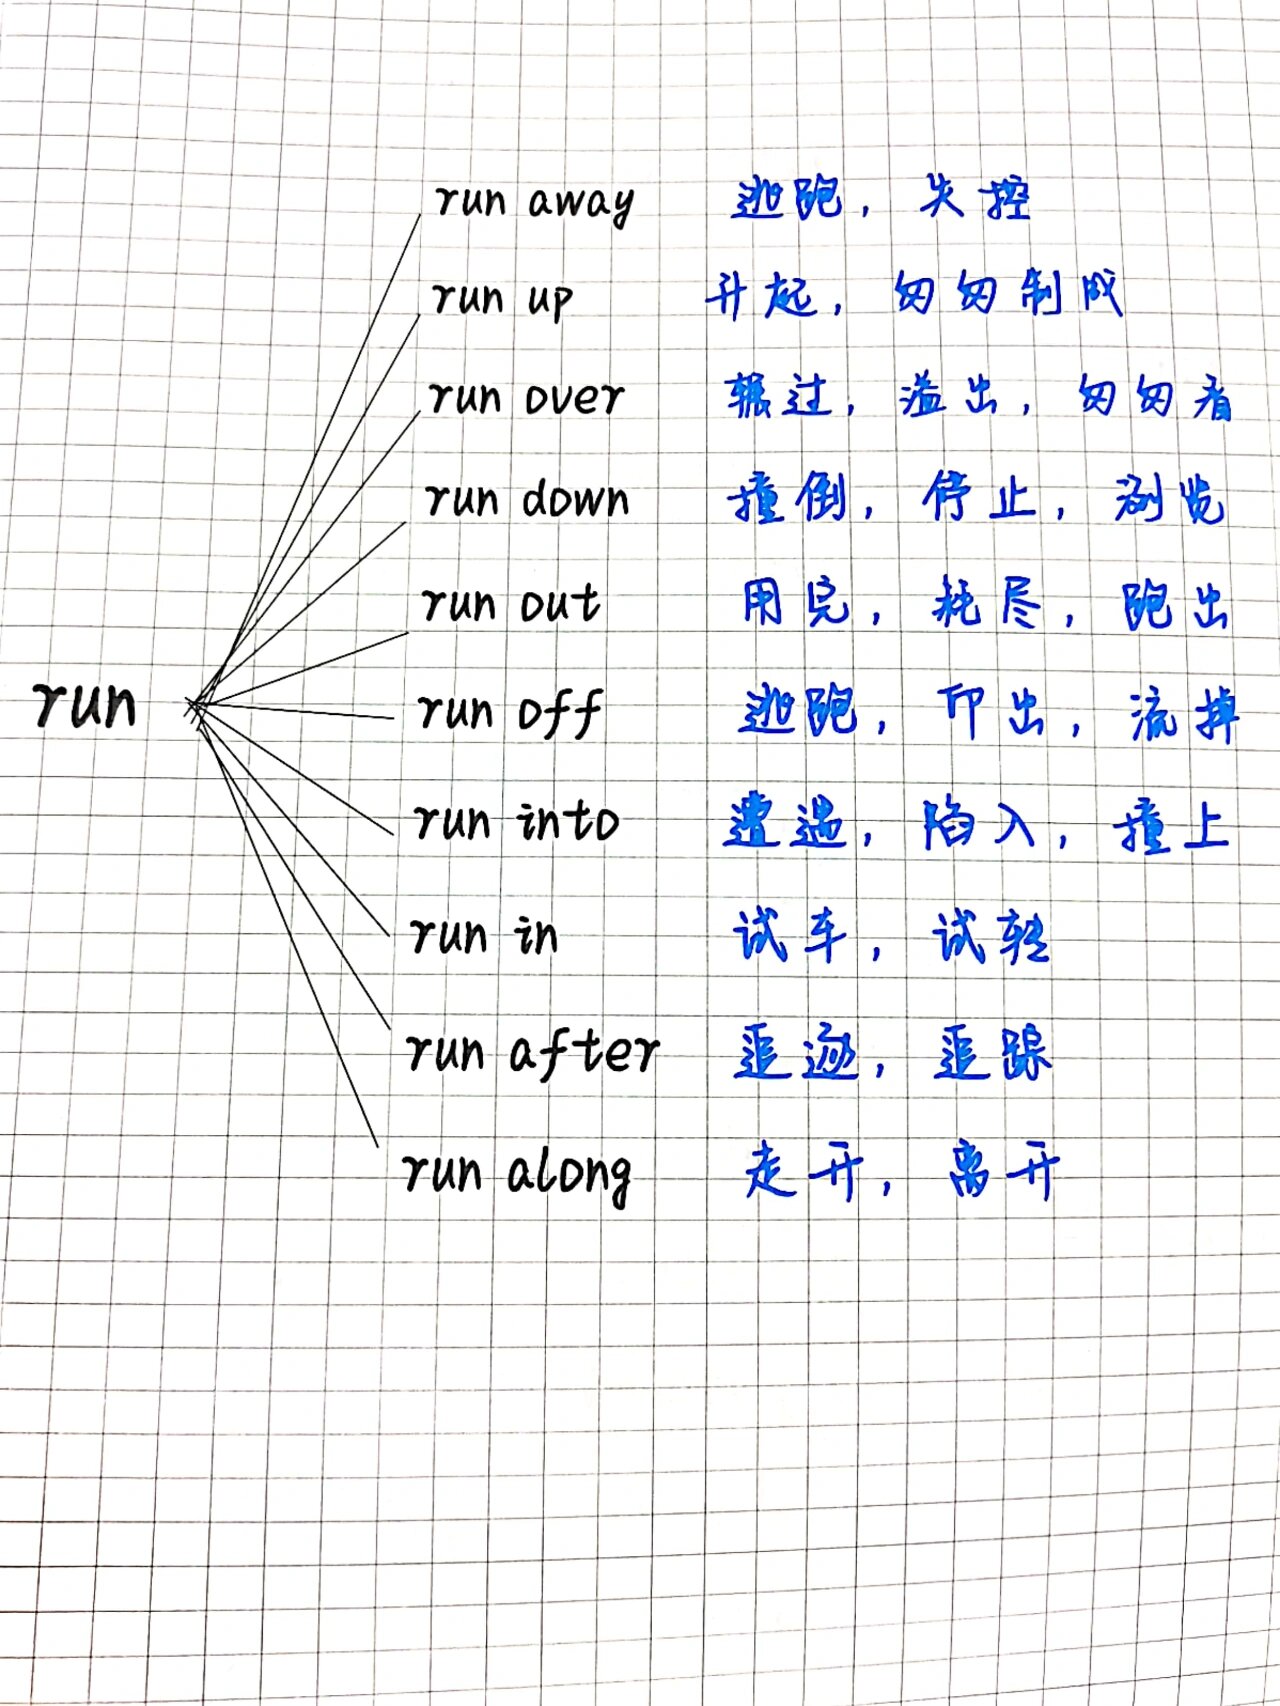 run away 逃跑，失控
run up 升起，匆匆制成
run over 辗过，溢出，匆匆看
run down 撞倒，停止，浏览
run out 用完，耗尽，跑出
run
run off 逃跑，印出，流掉
run into 遭遇，陷入，撞上
run in 试车，试转
run after 追逐，追踪
run along 走开，离开